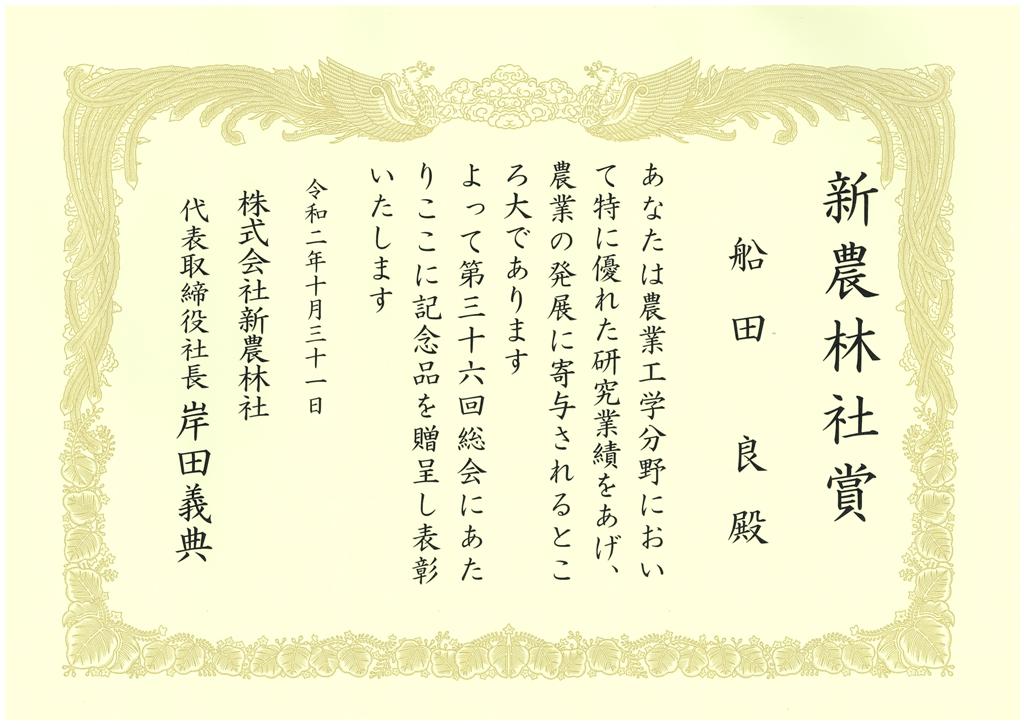 新農林社賞
船田 良 殿
あなたは農業工学分野におい
て特に優れた研究業績をあげ、
農業の発展に寄与されるとこ
ろ大であります
よって第三十六回総会にあた
りここに記念品を贈呈し表彰
いたします
令和二年十月三十一日
株式会社新農林社
代表取締役社長 岸田義典